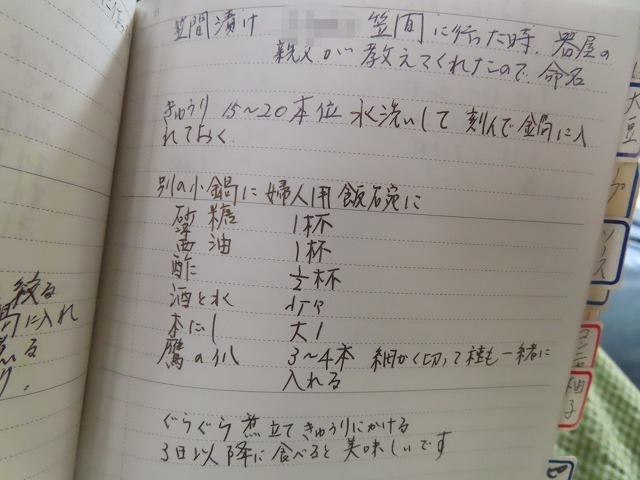 笠間漬け 笠間に行った時、器屋の
親父が教えてくれたので命名
きゅうり 15~20本位 水洗いして刻んで金鍋に入
れておく
別の小鍋に婦人用飯碗に
砂糖 1杯
醤油 1杯
酢 1/2杯
酒と水 少々
本だし 大1
鷹の爪 3~4本 細かく切って種も一緒に
入れる
ぐらぐら煮立てきゅうりにかける
3日以降に食べると美味しいです
絞る
に入れ
る
り.
大豆
ソース
柚子